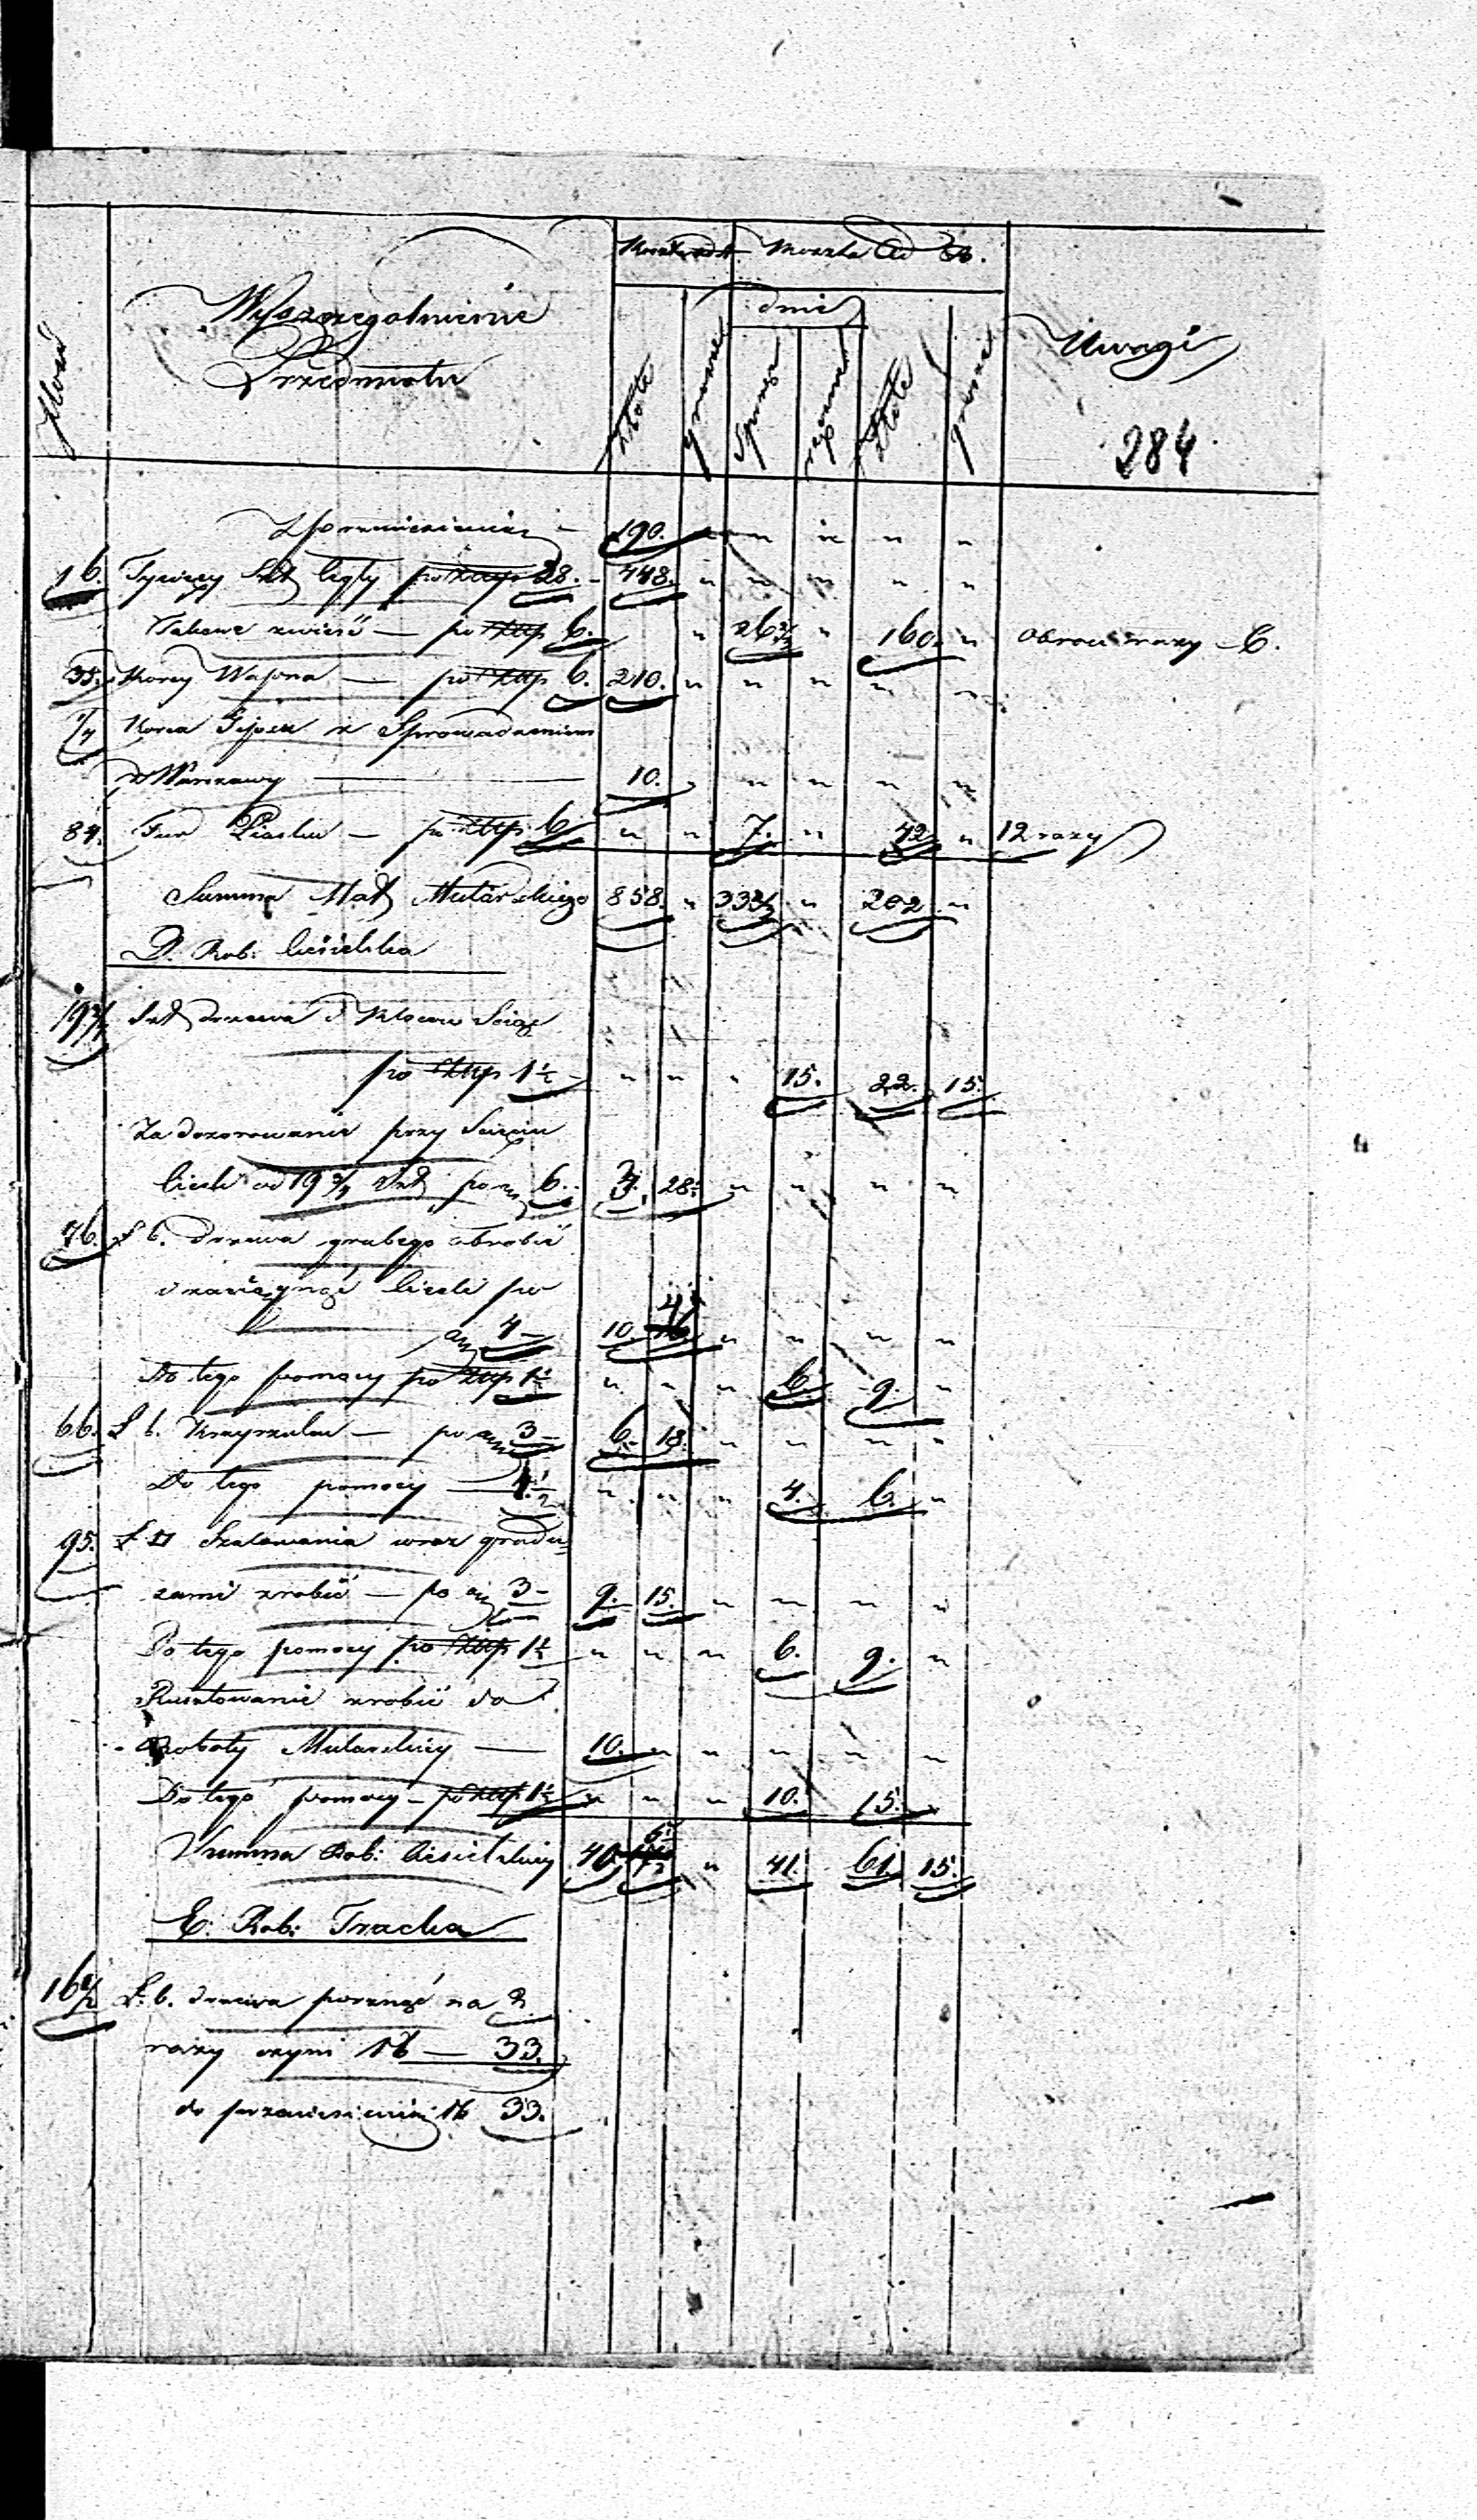 Ilość Wyszczególnienie Przedmiotu złote grosze dnie sprzęż. złote grosze Uwagi
284
Z przeniesienia — 190. " " " " "
16. Tysięcy Szt cegły po złtp 28. — 448. " " " " "
Takowe zwieść — po złtp 6. " 26 2/3 " 160. " obróci razy — 6.
35. Korcy Wapna — po złtp 6. 210. " " " " "
1/4 Korca Gipsu z Sprowadzeniem
z Warszawy — 10. " " " " "
84. Fur Piasku — po złtp 6 " " 7. " 42. " 12 razy
Summa Mat Mularskiego 858. " 33 2/3 " 202 "
D. Rob: Ciesielska
Szt drzewa z Klocow Sciąć
po złtp 1½ — " " " 15. 22. 15.
Za dozorowanie przy Scięciu
Cieśli od 19 Szt po 6. 3. 28. " " " "
76. Ł b. drzewa grubego obrobić
i zawiązać Cieśli po
4 — 10. 4 " " " "
Do tego pomocy po złtp 1½ " " " 6. 9. "
66. Ł b. Krzyżulcu — po 3 — 6. 18. " " " "
Do tego pomocy — 1½ " " " 4. 6. "
95. Ł □ Szalowania wraz
zami zrobić — po 3 — 9. 15. " " " "
Do tego pomocy po złtp 1½ " " " 6. 9. "
Rusztowanie zrobić do
Roboty Mularskiey — 10. " " " " "
Do tego pomocy — po złtp 1½ " " " 10. 15. "
Summa Rob: Ciesielskiey 40. " 41. 61. 15.
E. Rob: Tracka
16½ Ł. b. drzewa porznąć na 2
razy czyni ł b — 33.
do przeniesienia ł b 33.